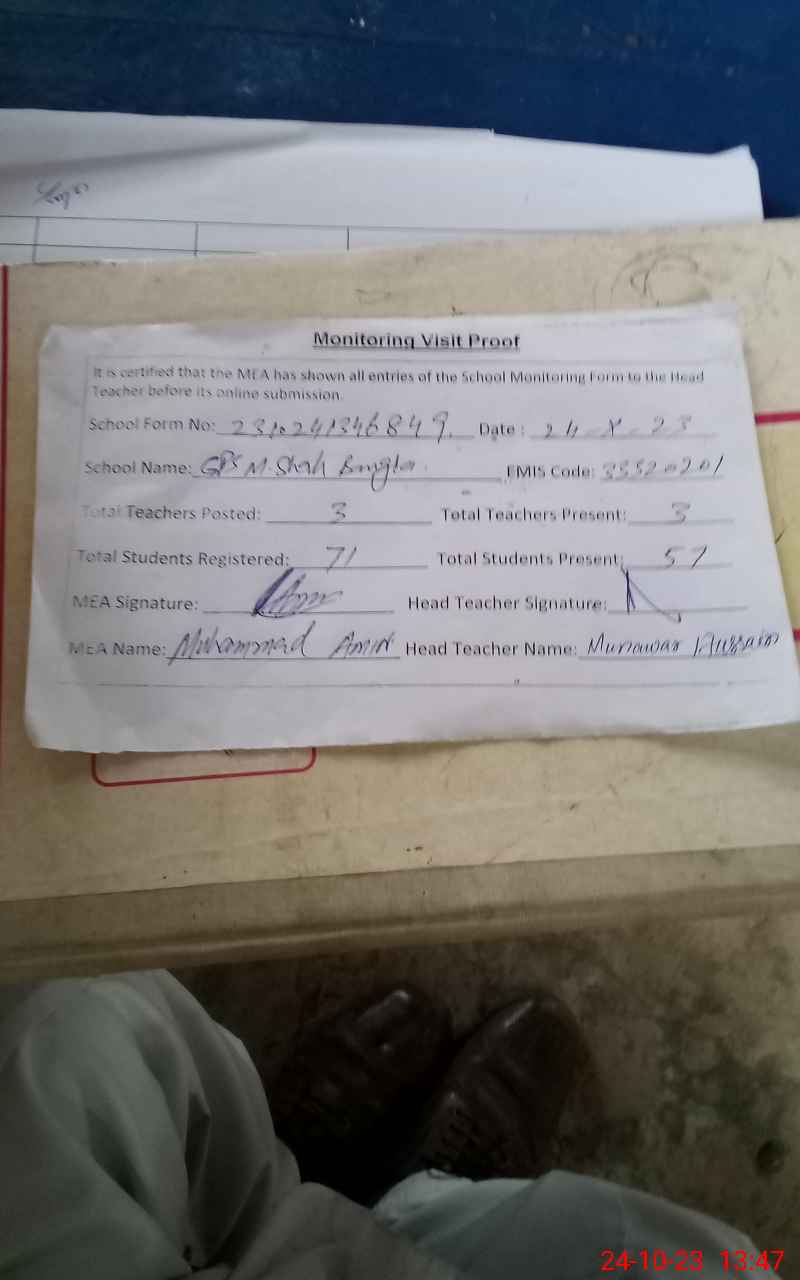 Monitoring Visit Proof
It is certified that the MEA has shown all entries of the School Monitoring Form to the Head
Teacher before its online submission.
School Form No: 2310241346849. Date : 24-X-23
School Name: GPS M. Shah Bangla. EMIS Code: 33320201
Total Teachers Posted: 3 Total Teachers Present: 3
Total Students Registered: 71 Total Students Present: 57
MEA Signature: Head Teacher Signature:
MEA Name: Muhammad Amin Head Teacher Name: Munawar Hussain
24-10-23 13:47